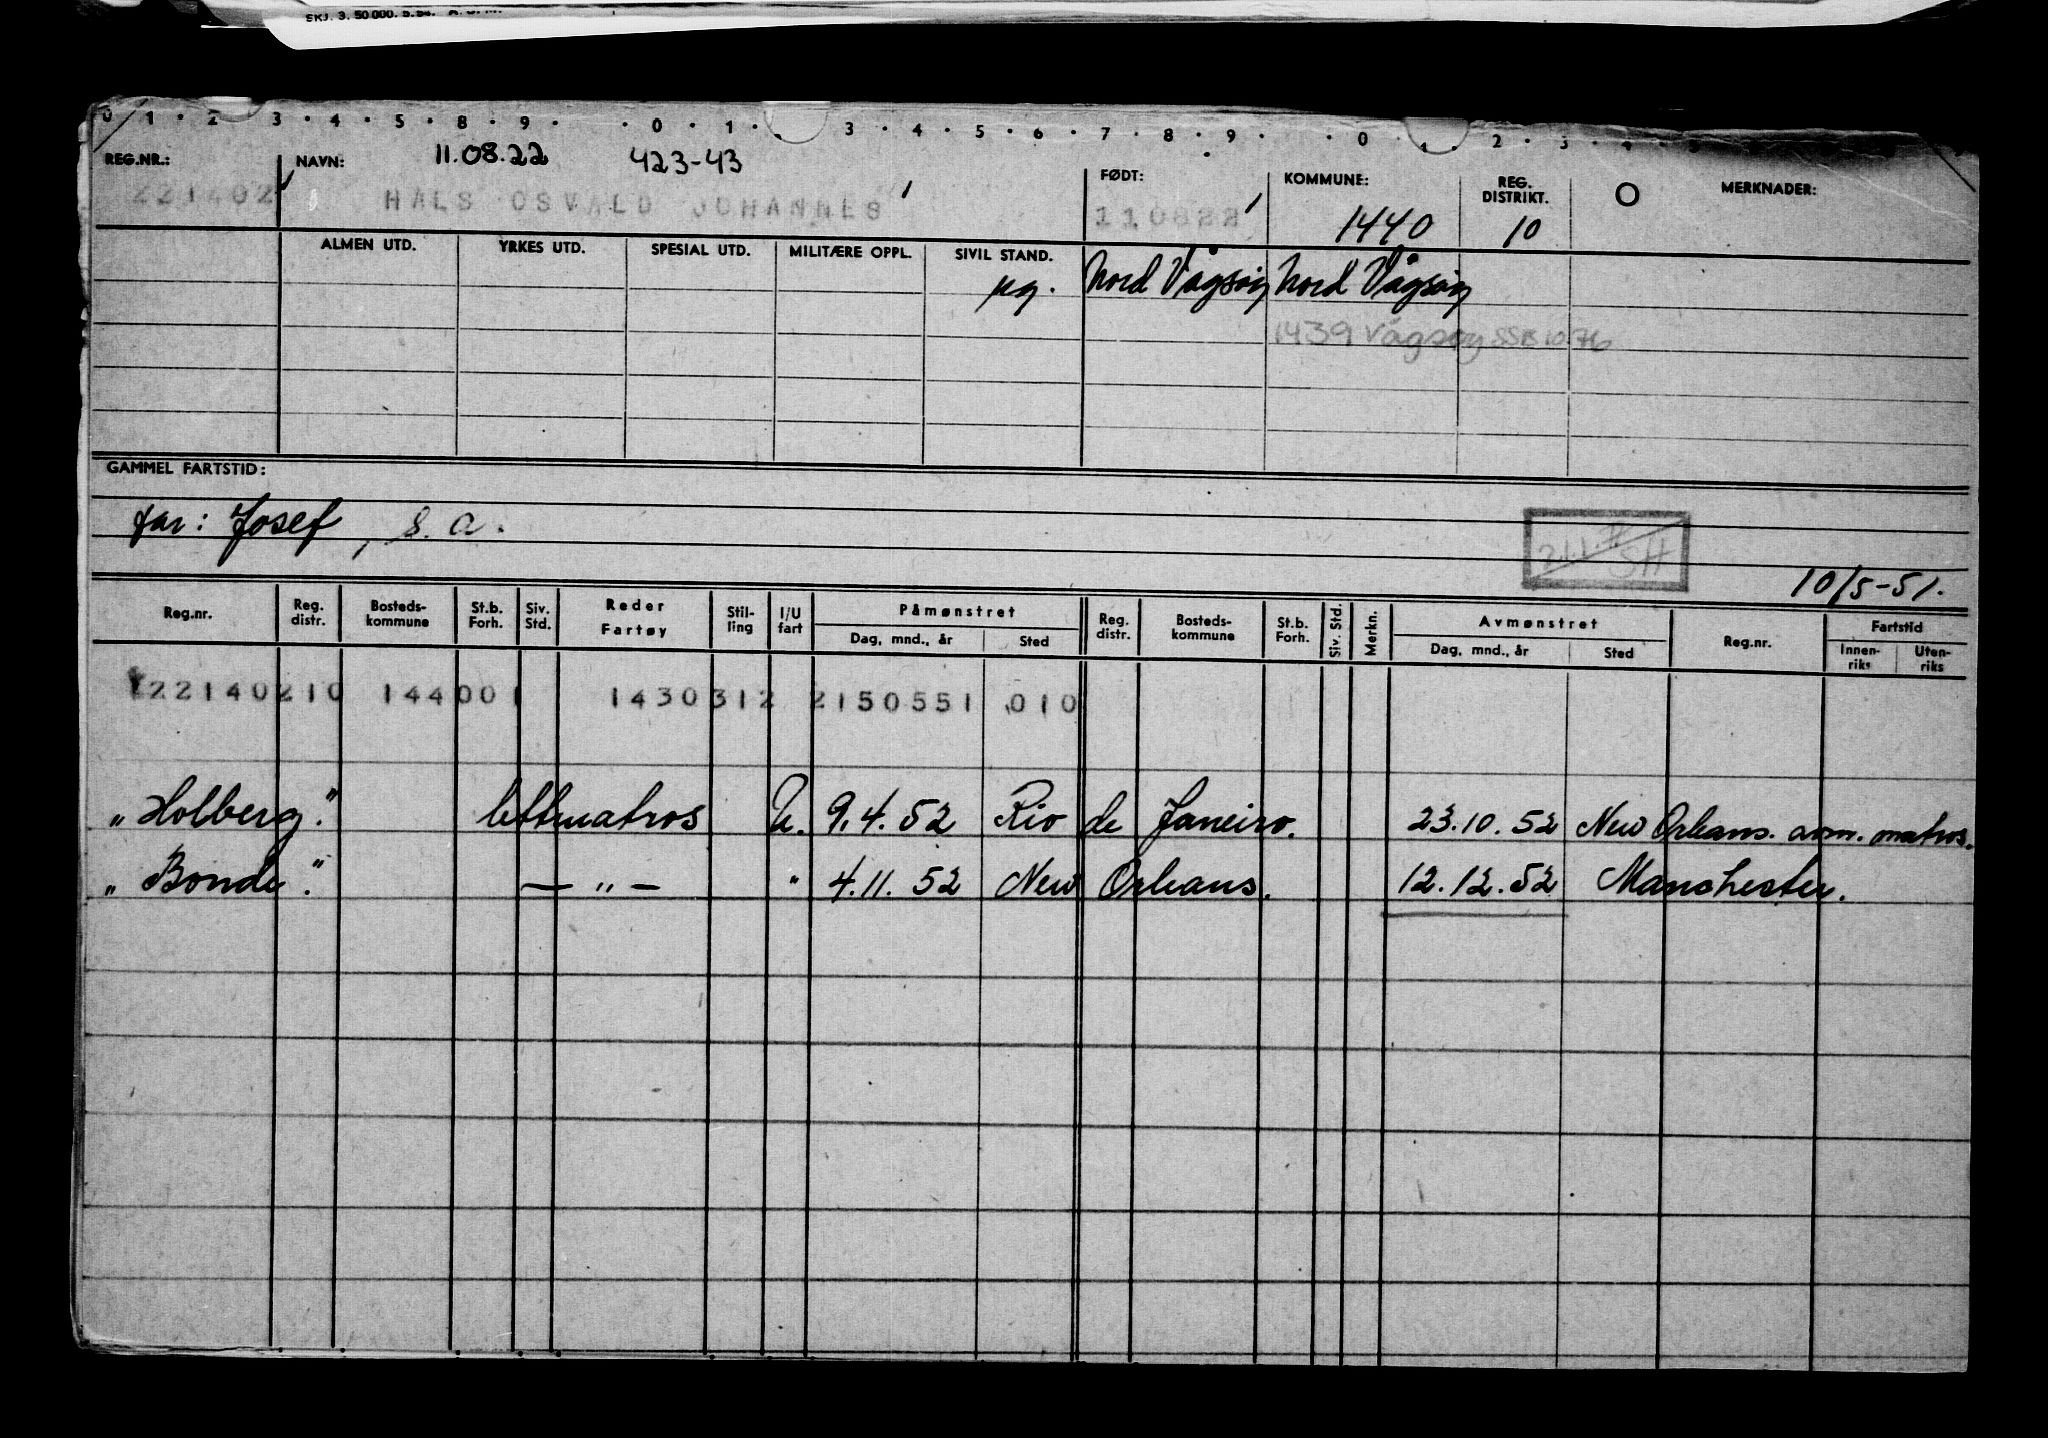 SKJ. 3. 50 000. 5.54.
0 1 2 3 4 5 8 9 0 1 3 4 5 6 7 8 9 0 1 2 3 4
REG.NR.: NAVN: 11.08.22 423-43 FØDT: KOMMUNE: REG. DISTRIKT. O MERKNADER:
221402 HALS OSVALD JOHANNES 110822 1440 10
ALMEN UTD. YRKES UTD. SPESIAL UTD. MILITÆRE OPPL. SIVIL STAND.
ug. Nord Vågsøy Nord Vågsøy
1439 Vågsøy SSB 10.76
GAMMEL FARTSTID:
far: Josef, s. a.
SH
10/5-51.
Reg.nr. Reg. distr. Bosteds-kommune St.b. Forh. Siv. Std. Reder Fartøy Stil-ling I/U fart Påmønstret Dag, mnd., år Sted Reg. distr. Bosteds-kommune St.b. Forh. Siv. Std. Merkn. Avmønstret Dag, mnd., år Sted Reg.nr. Fartstid Innen-riks Uten-riks
22140210 144001 1430312 2150551 010
"Holberg." lettmatros U. 9.4.52 Rio de Janeiro. 23.10.52 New Orleans. avm. matros.
"Bonde." — " — " 4.11.52 New Orleans. 12.12.52 Manchester.